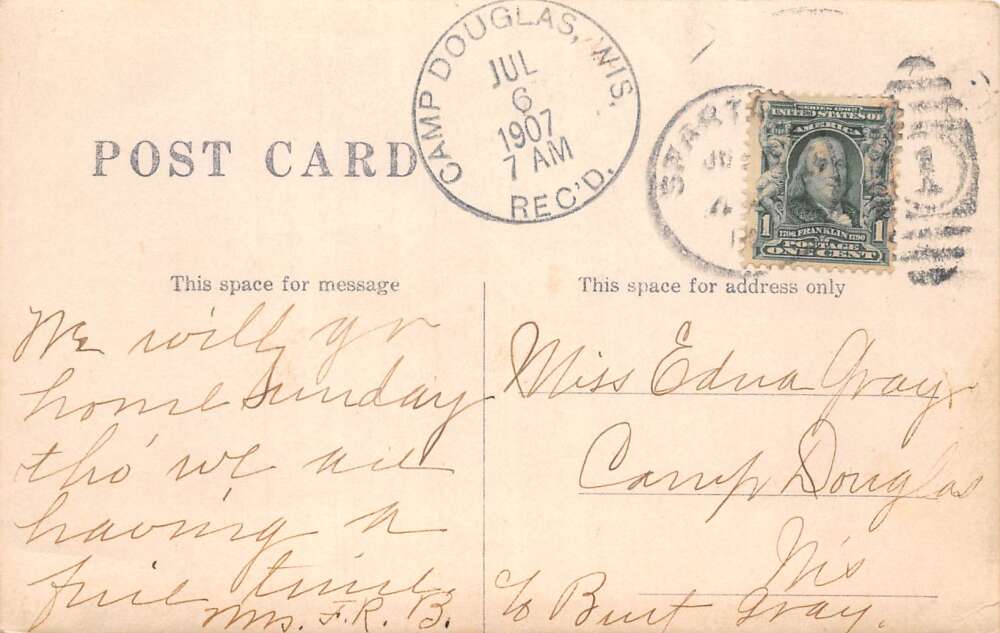 CAMP DOUGLAS, WIS.
JUL
6
1907
7 AM
REC'D.
POST CARD
SPART
JUL
1
SERIES 1902
UNITED STATES OF
AMERICA
1706 FRANKLIN 1790
POSTAGE
1 ONE CENT 1
This space for message
We will go
home Sunday
tho' we are
having a
fine time.
Mrs. F. R. B.
This space for address only
Miss Edna Gray
Camp Douglas
Wis
c/o Burt Gray.